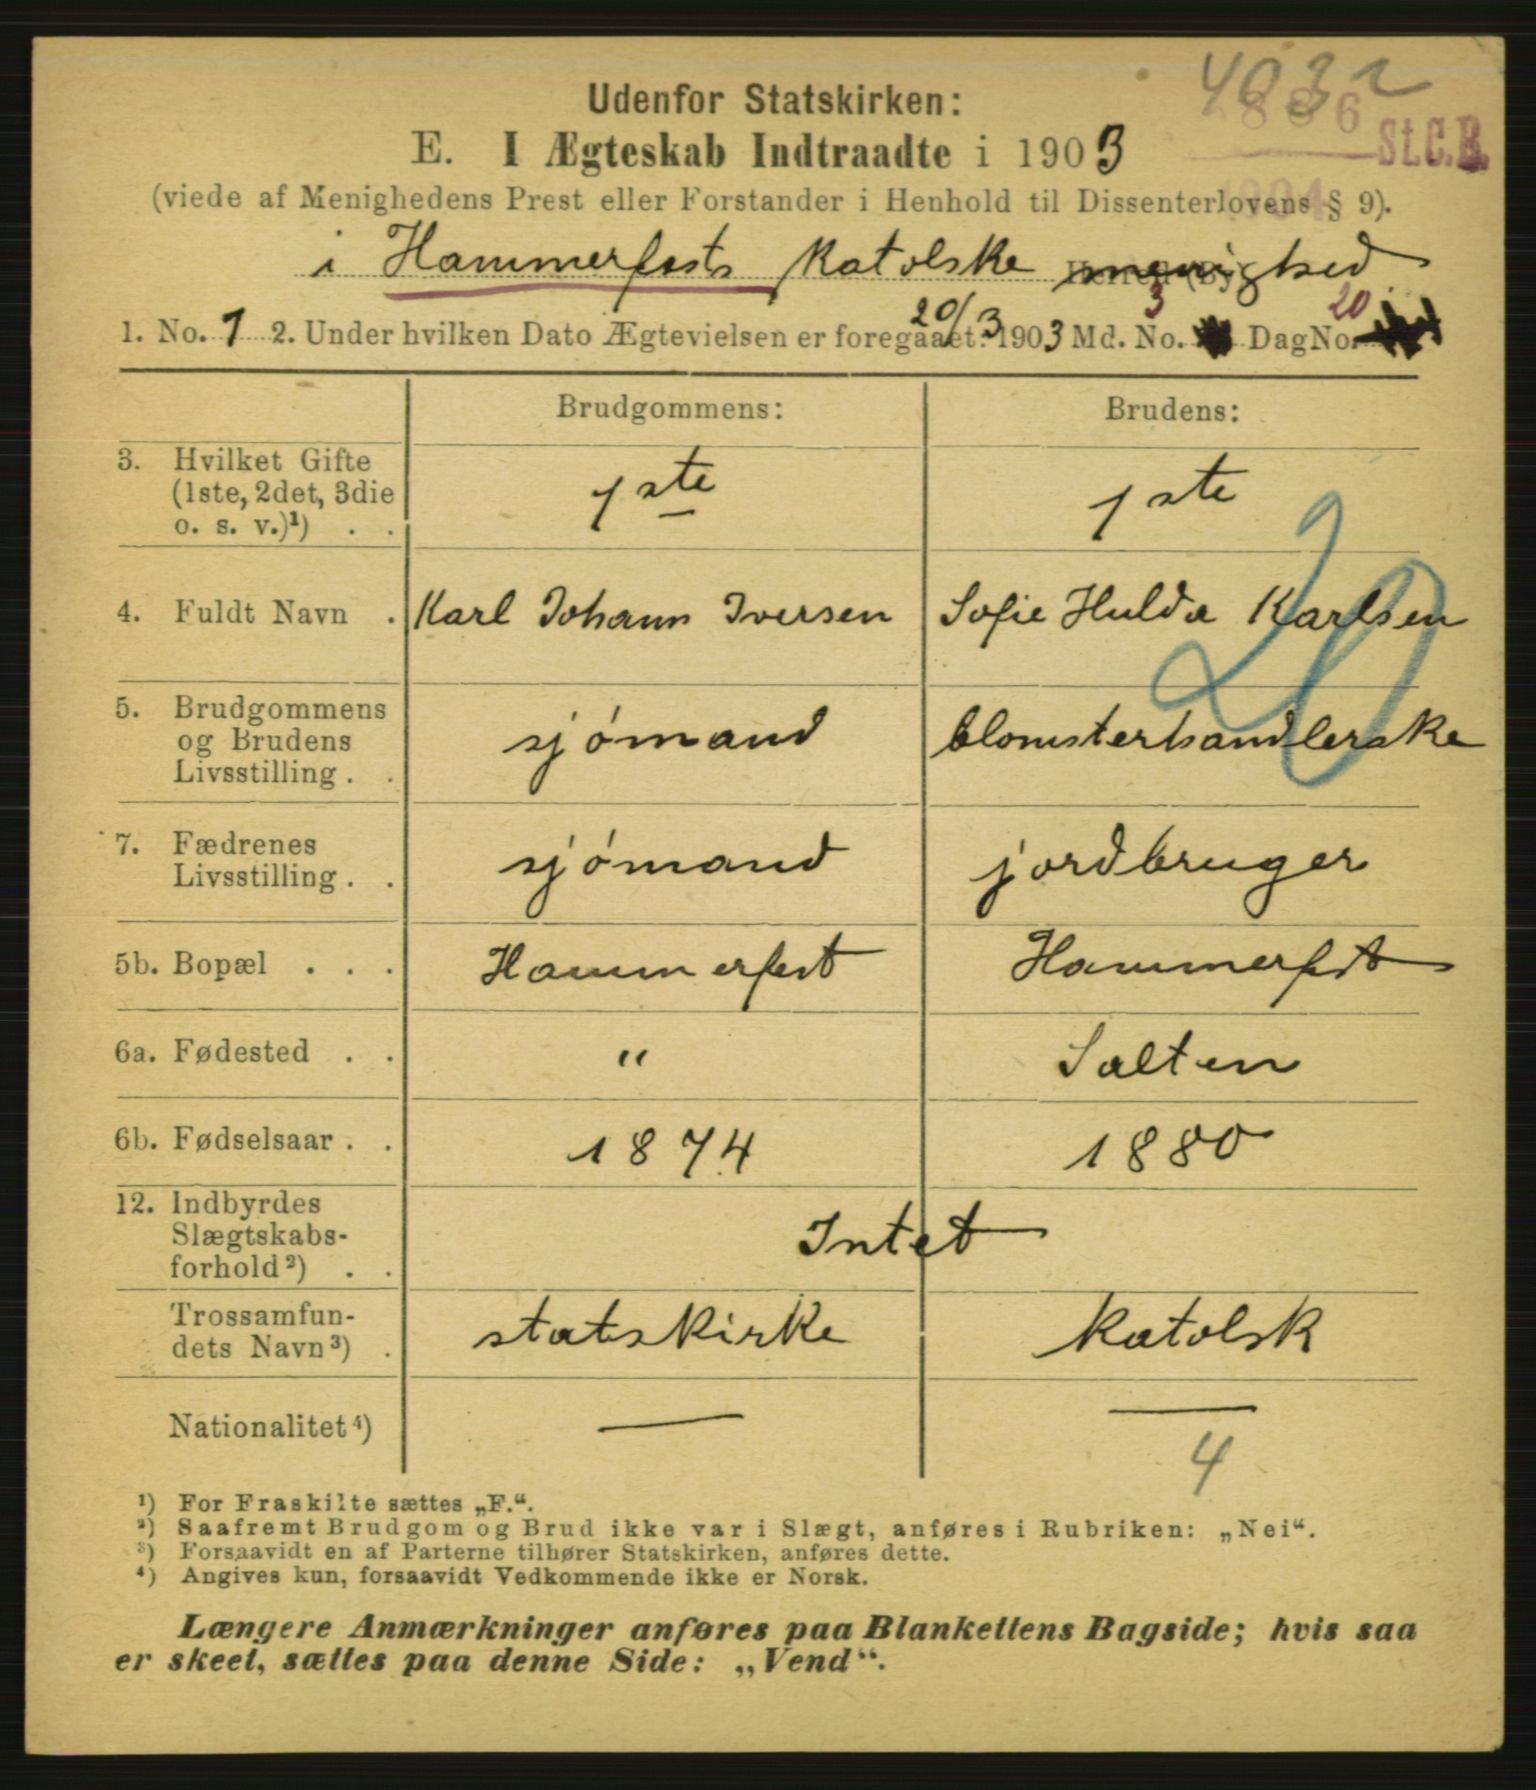 4032
886
St.C.B.
1904
Udenfor Statskirken:
E. I Ægteskab Indtraadte i 1903
(viede af Menighedens Prest eller Forstander i Henhold til Dissenterlovens § 9).
i Hammerfests katolske menighed
1. No. 1 2. Under hvilken Dato Ægtevielsen er foregaaet: 20/3 1903 Md. No. 3 Dag No. 20
Brudgommens: Brudens:
3. Hvilket Gifte
(1ste, 2det, 3die
o. s. v.)¹) . . 1ste 1ste
4. Fuldt Navn . Karl Johann Iversen Sofie Hulda Karlsen
20
5. Brudgommens
og Brudens
Livsstilling . . sjómand blomsterhandlerske
7. Fædrenes
Livsstilling . . sjómand jordbruger
5b. Bopæl . . . Hammerfest Hammerfest
6a. Fødested . . " Salten
6b. Fødselsaar . . 1874 1880
12. Indbyrdes
Slægtskabs-
forhold²) . . Intet
Trossamfun-
dets Navn³) . statskirke katolsk
Nationalitet⁴) — —
4
¹) For Fraskilte sættes „F.“.
²) Saafremt Brudgom og Brud ikke var i Slægt, anføres i Rubriken: „Nei“.
³) Forsaavidt en af Parterne tilhører Statskirken, anføres dette.
⁴) Angives kun, forsaavidt Vedkommende ikke er Norsk.
Længere Anmærkninger anføres paa Blankettens Bagside; hvis saa
er skeet, sættes paa denne Side: „Vend“.